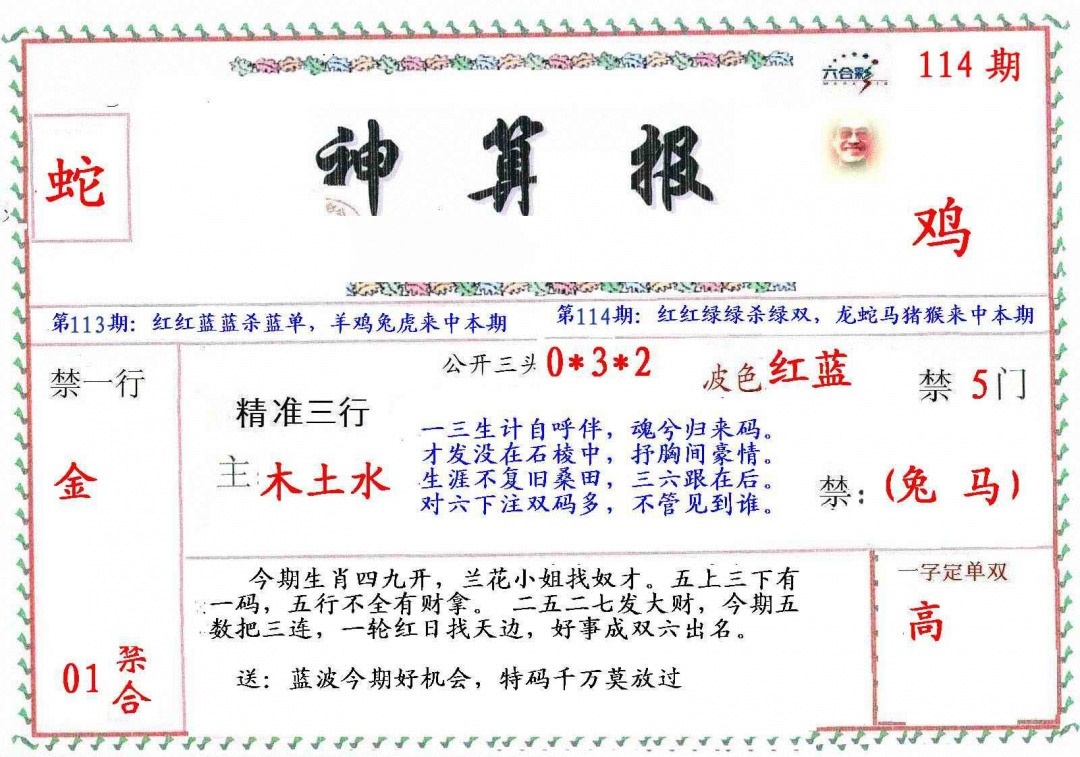 六合彩
114 期
神算报
蛇
鸡
第113期：红红蓝蓝杀蓝单，羊鸡兔虎来中本期
第114期：红红绿绿杀绿双，龙蛇马猪猴来中本期
禁一行
金
01 禁合
公开三头 0*3*2
波色 红蓝
禁 5门
精准三行
主: 木土水
一三生计自呼伴，魂兮归来码。
才发没在石棱中，抒胸间豪情。
生涯不复旧桑田，三六跟在后。
对六下注双码多，不管见到谁。
禁：(兔 马)
今期生肖四九开，兰花小姐找奴才。五上三下有
一码，五行不全有财拿。 二五二七发大财，今期五
数把三连，一轮红日找天边，好事成双六出名。
送：蓝波今期好机会，特码千万莫放过
一字定单双
高